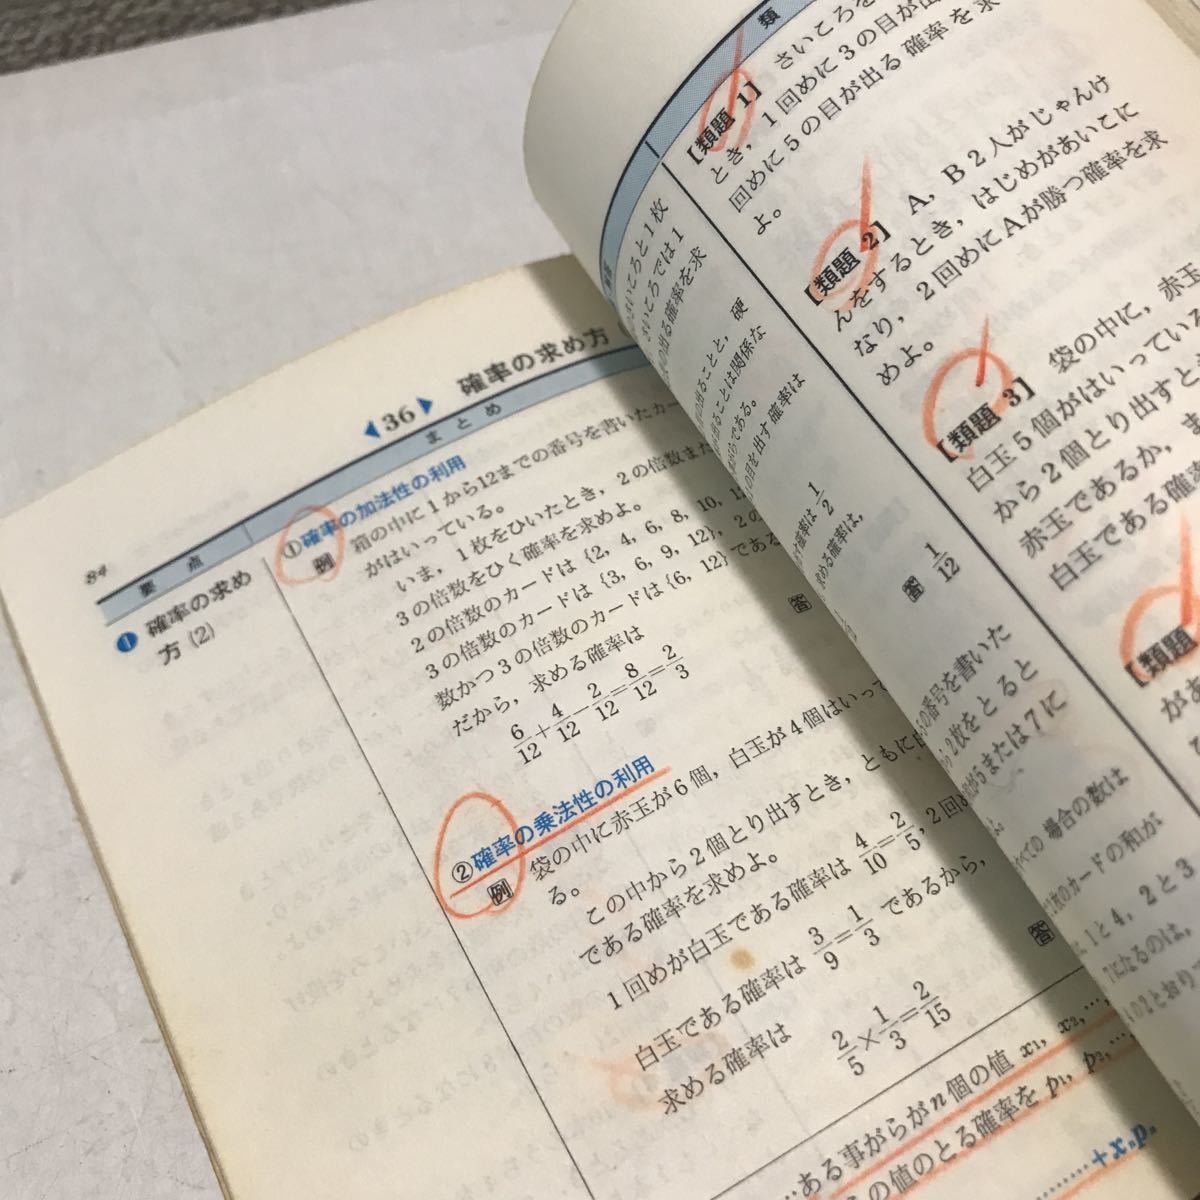 84
◀36▶ 確率の求め方
要点
まとめ
❶ 確率の求め
方(2)
①確率の加法性の利用
例 箱の中に1から12までの番号を書いたカー
がはいっている。
いま，1枚をひいたとき，2の倍数また
3の倍数をひく確率を求めよ。
2の倍数のカードは {2, 4, 6, 8, 10, 1
3の倍数のカードは {3, 6, 9, 12}，2の
数かつ3の倍数のカードは {6, 12} である
だから，求める確率は
6/12+4/12−2/12=8/12=2/3
答
②確率の乗法性の利用
例 袋の中に赤玉が6個，白玉が4個はいって
る。
この中から2個とり出すとき，ともに
である確率を求めよ。
1回めが白玉である確率は 4/10=2/5，2回
白玉である確率は 3/9=1/3 であるから，
求める確率は 2/5×1/3=2/15
答
ある事がらがn個の値 x₁, x₂, …,
の値のとる確率を p₁, p₂, …,
……+xₙpₙ
さいころと1枚
さいころでは1
の出る確率を求
出ることと，硬
出ることは関係な
がらである。
の目を出す確率は
確率は 1/2
求める確率は，
答 1/12
の番号を書いた
2枚をとると
が5または7に
すべての場合の数は
2枚のカードの和が
1と4，2と3
7になるのは，
の2とおり
類
【類題 1】 さいころを
とき，1回めに3の目が出
回めに5の目が出る確率を求
よ。
【類題 2】 A，B2人がじゃんけ
んをするとき，はじめがあいこに
なり，2回めにAが勝つ確率を求
めよ。
【類題 3】 袋の中に，赤玉
白玉5個がはいっている
から2個とり出すとき
赤玉であるか，ま
白玉である確率
【類題
があ